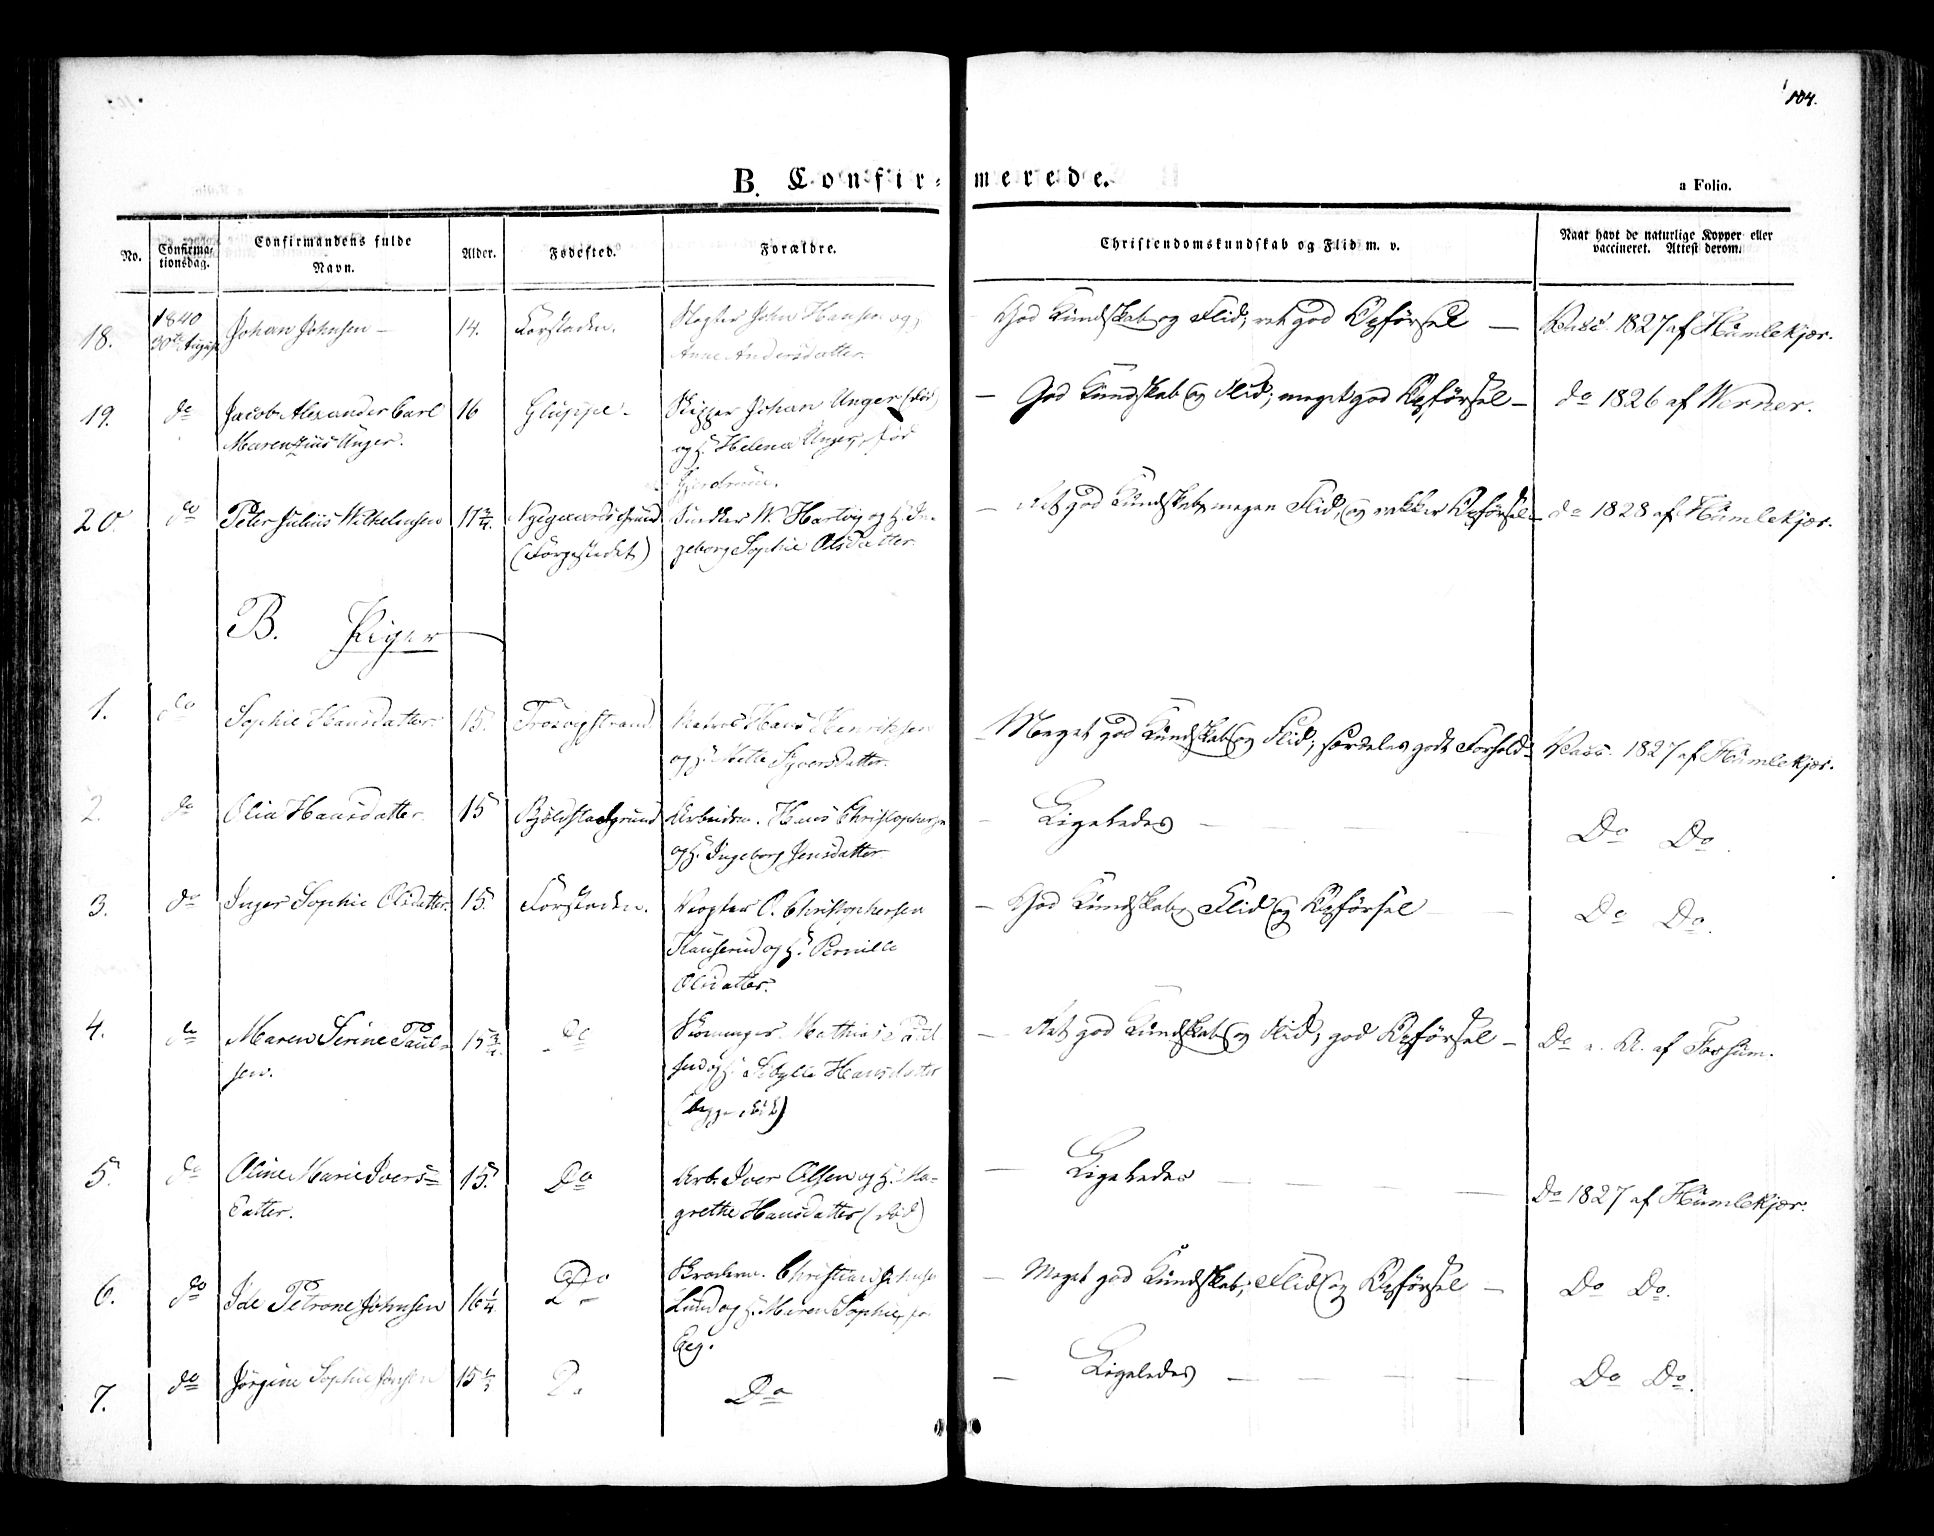 104.
B. Confir- merede.
a Folio.
No.
Confirma-
tionsdag.
Confirmandens fulde
Navn.
Alder.
Fødested.
Forældre.
Christendomskundskab og Flid m. v.
Naar havt de naturlige Kopper eller
vaccineret. Attest derom.
18.
1840
30te August
Johan Johnsen
14.
Forstaden.
John Hansen og
Anne Andersdatter.
God Kundskab og Flid; ret god Opførsel
Vacc. 1827 af Humlekjær.
19.
do
Jacob Alexander Carl
Marentzius Unger.
16
Gluppe.
Skipper Johan Unger (død)
og H. Helena Unger, fød
God Kundskab og Flid; meget god Opførsel
do 1826 af Werner.
20.
do
Peter Julius Wilhelmsen
17 3/4.
(Færgestedet)
Snedker W. Hartvig og H. In-
geborg Sophie Olsdatter.
Ret god Kundskab, megen Flid, og vakker Opførsel
do 1828 af Humlekjær.
B. Piger
1.
do
Sophie Hansdatter.
15.
Trosvigstrand.
Matros Hans Henriksen
og H. Mette Syversdatter.
Meget god Kundskab og Flid; særdeles godt Forhold
Vacc. 1827 af Humlekjær.
2.
do
Olia Hansdatter.
15
Bjølstadgrund
Arbeidsm. Hans Christophersen
og H. Ingeborg Jensdatter.
Ligeledes
Do Do.
3.
do
Inger Sophie Olsdatter.
15.
Forstaden.
O. Christophersen
og H. Pernille
Olsdatter.
God Kundskab, Flid og Opførsel
Do Do.
4.
do
Maren Sirine Paul-
sen.
15 3/4.
do
Mathias Paul-
sen og H. Sibylle Hansdatter
(begge død)
Ret god Kundskab og Flid; god Opførsel
Do af Forsum.
5.
do
Oline Marie Ivers-
datter.
15.
Do
Arb. Iver Olsen og H. Ma-
grethe Hansdatter (død)
Ligeledes
Do 1827 af Humlekjær.
6.
do
Ide Petrone Johnsen
16 1/4
Do
Christian Johnsen
Lund og H. Maren Sophie, f.
Eeg.
Meget god Kundskab, Flid og Opførsel
Do Do.
7.
do
Jørgine Sophie Jonsen
15 1/2
Do
Do
Ligeledes
Do Do.